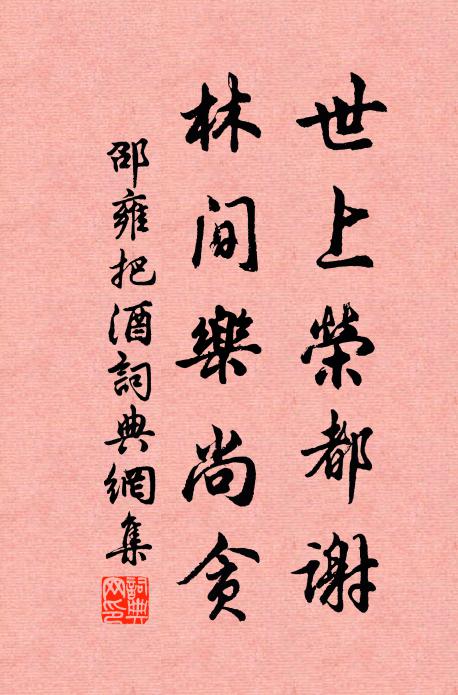 世上榮都謝
林間樂尚貪
邵雍把酒詞典網集
詞典網印